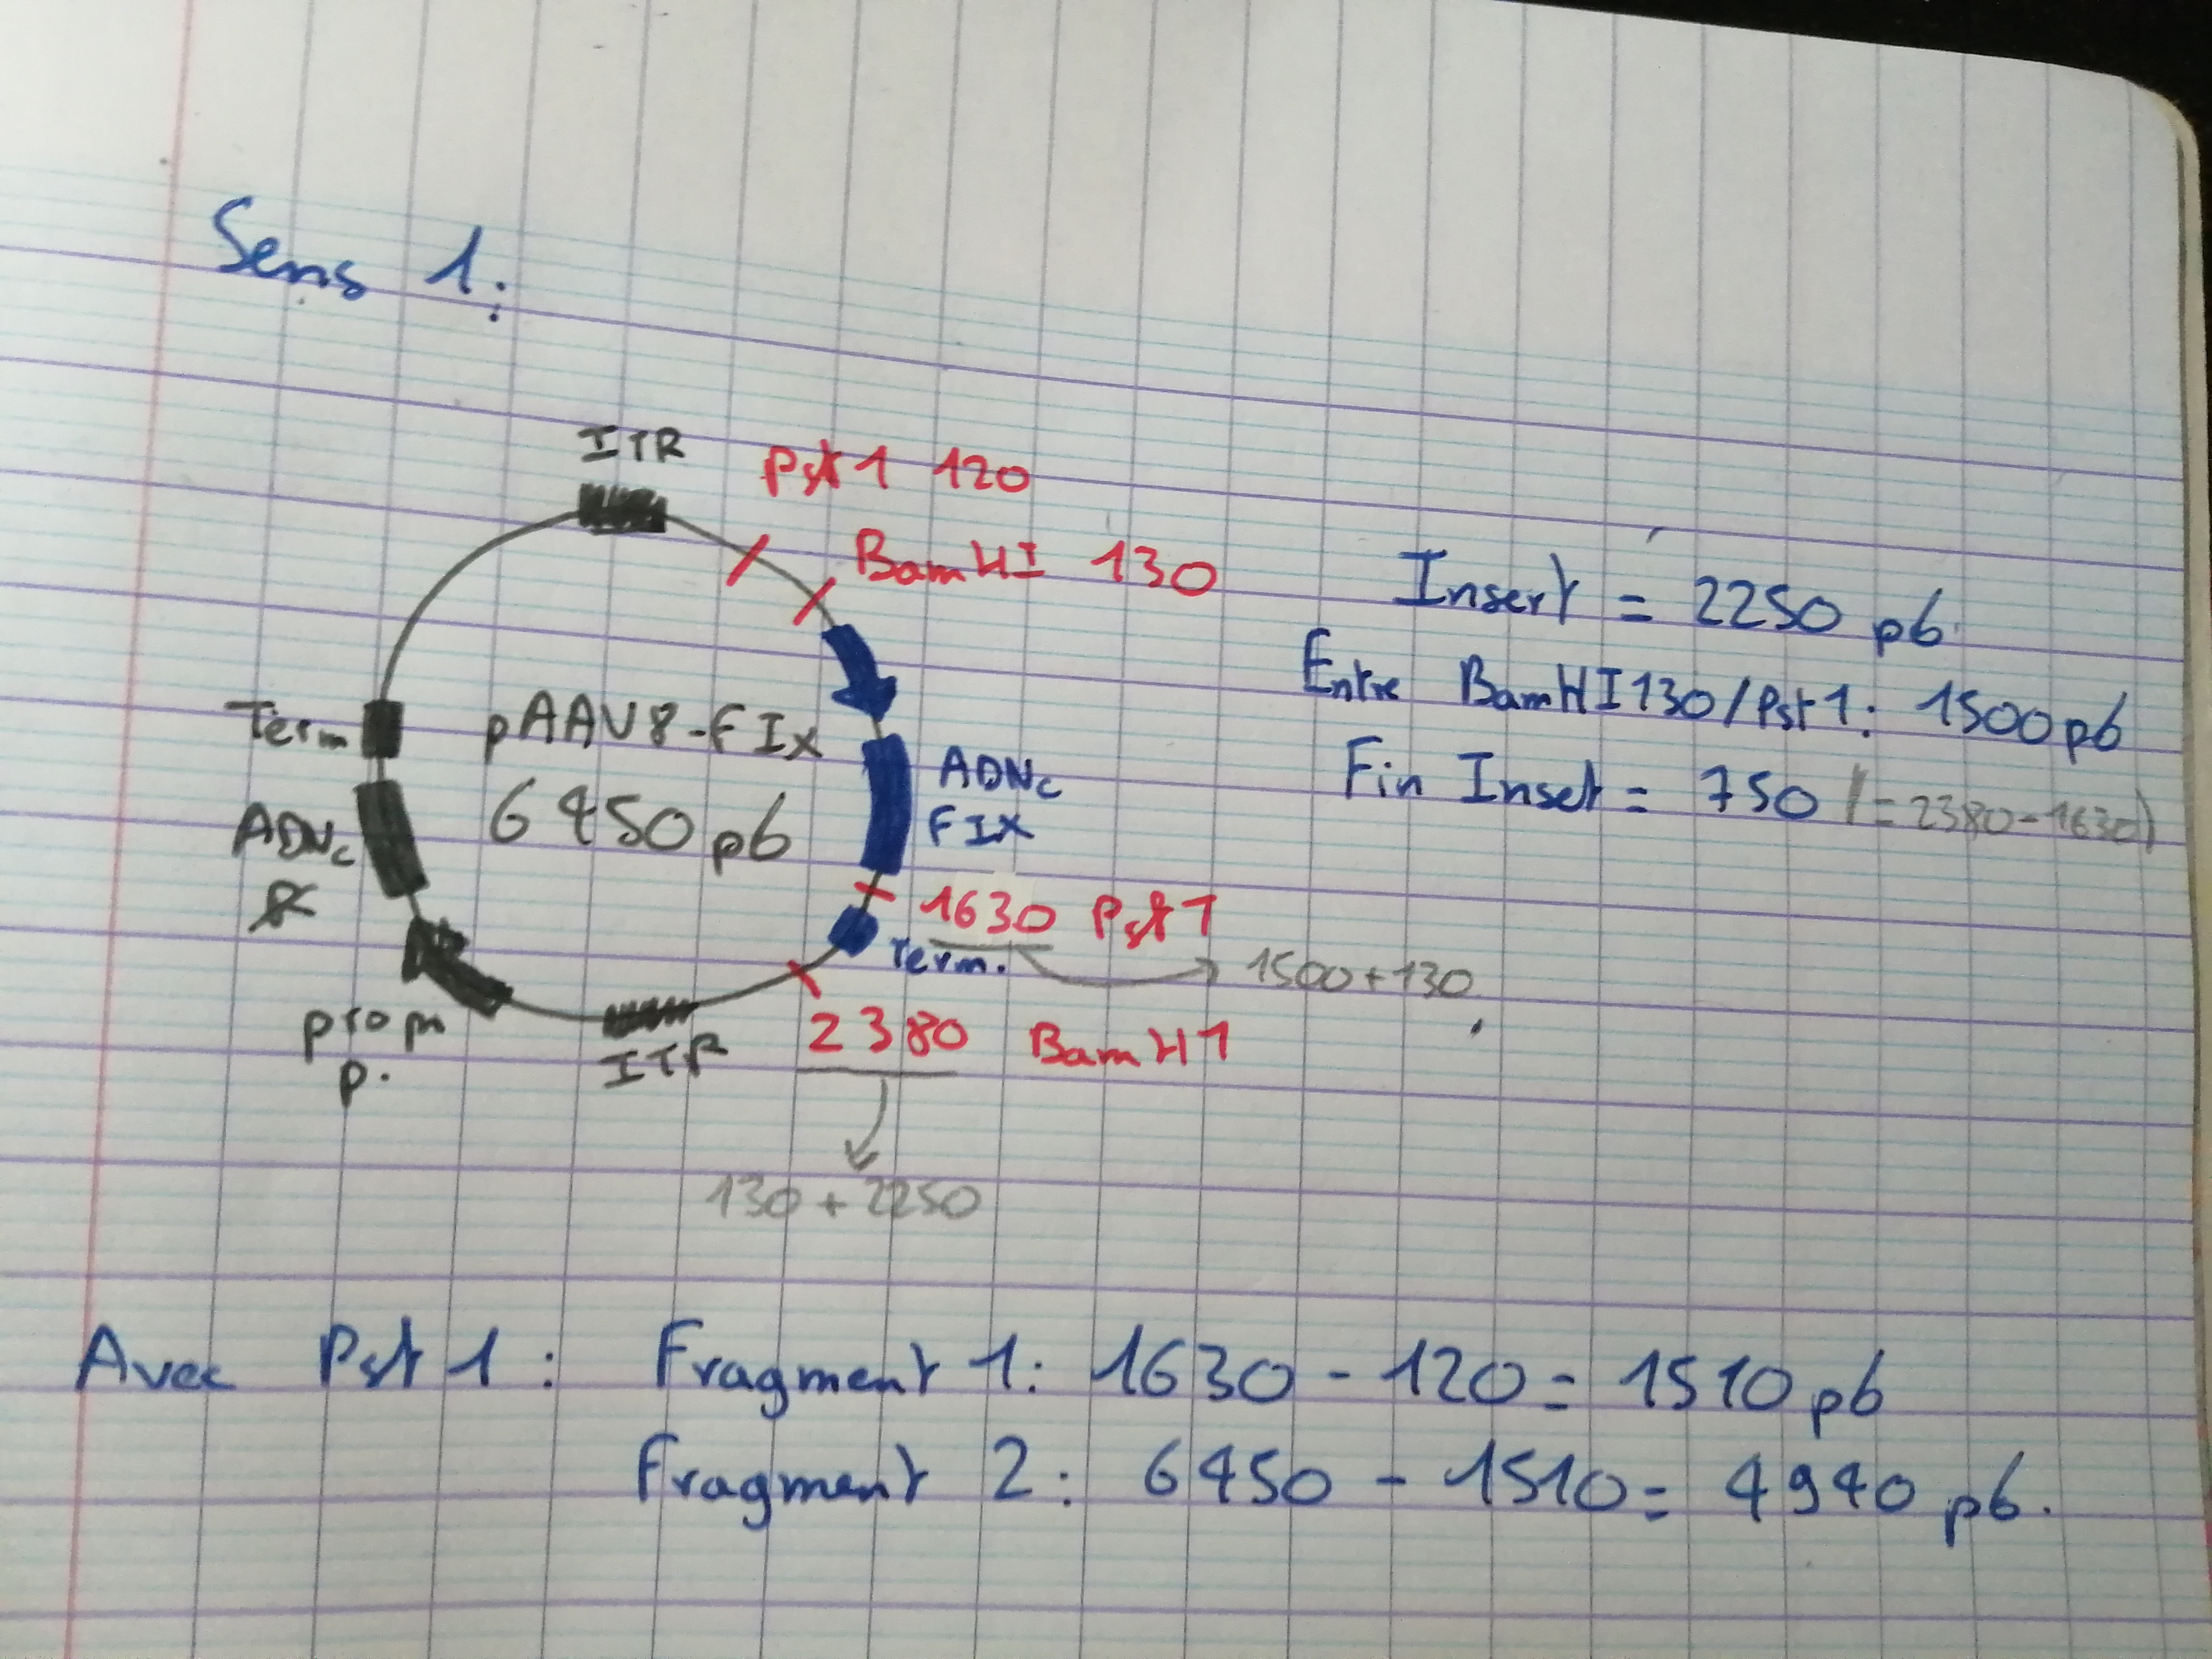 Sens 1:
ITR
Pst1 120
BamHI 130
Insert = 2250 pb
Entre BamHI130/Pst1: 1500pb
Fin Inset = 750 (= 2380-1630)
Term
pAAV8-FIX
6450 pb
ADNc
FIX
ADNc
1630 Pst1
Term.
1500+130
prom
p.
ITR
2380 BamH1
130+2250
Avec Pst1: Fragment 1: 1630 - 120 = 1510 pb
Fragment 2: 6450 - 1510 = 4940 pb.